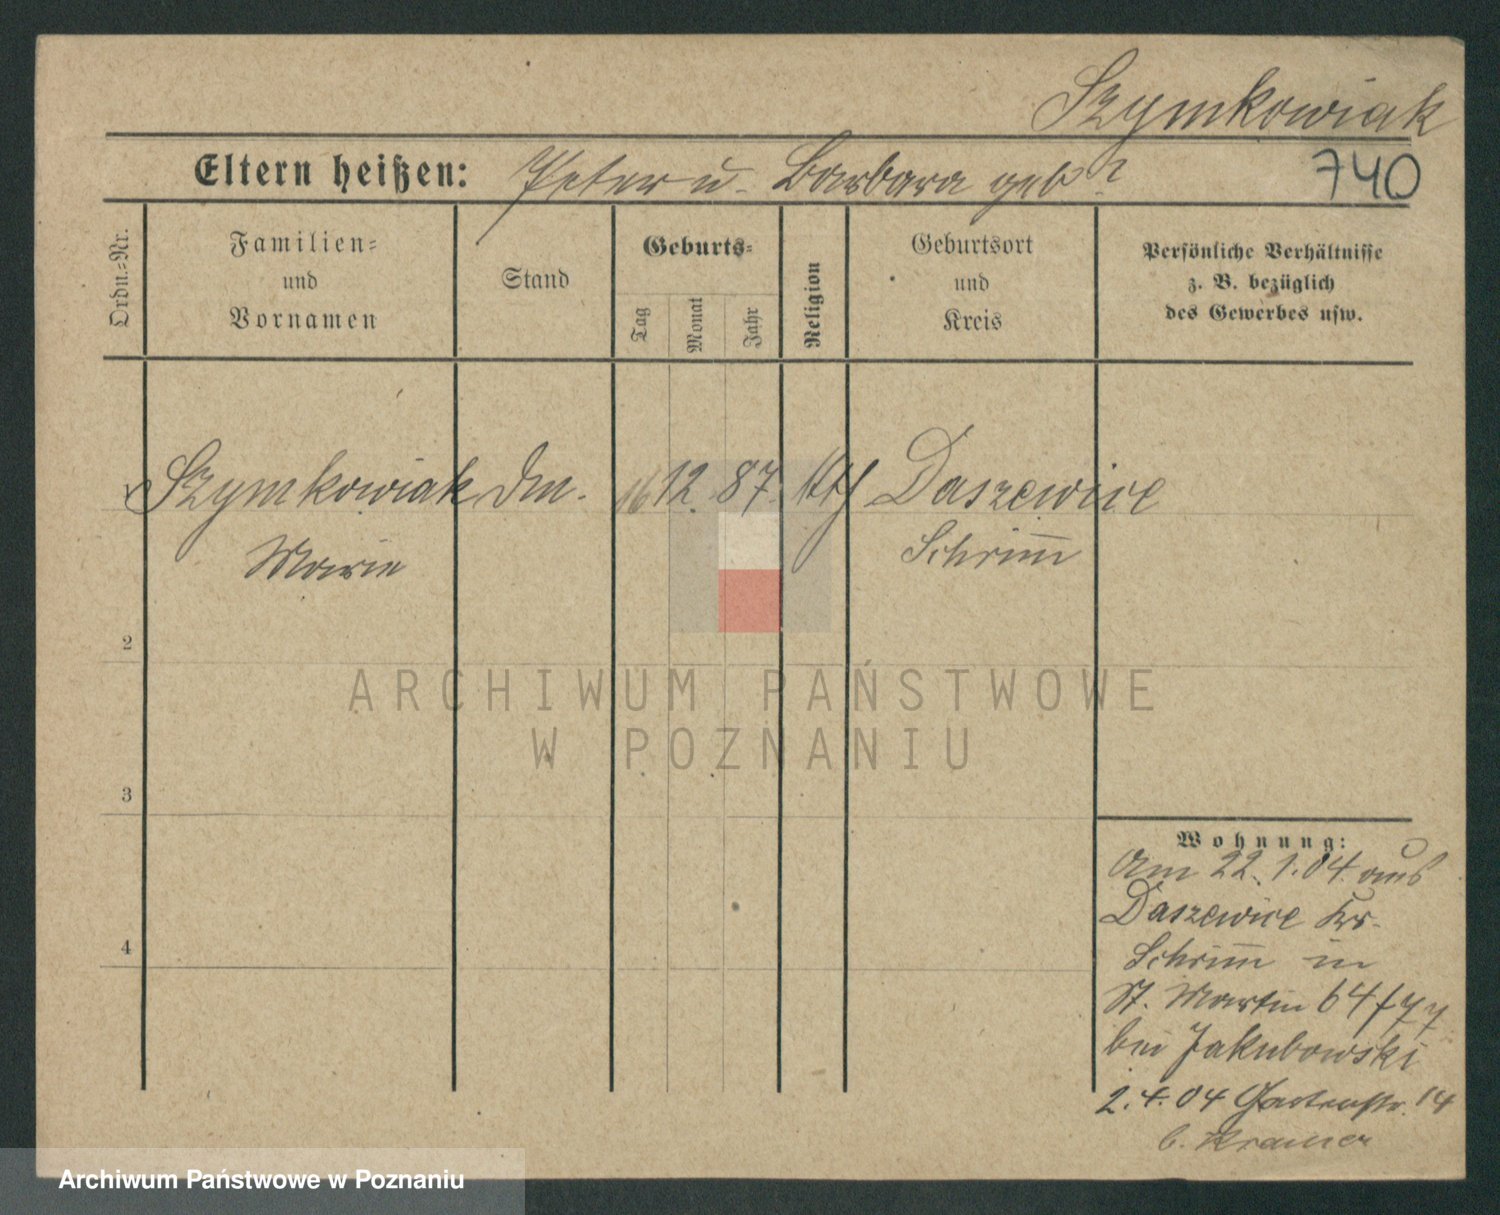 Szymkowiak
Eltern heißen: Peter u. Barbara geb ?
740
Ordn.=Nr.
Familien=
und
Vornamen
Stand
Geburts=
Tag
Monat
Jahr
Religion
Geburtsort
und
Kreis
Persönliche Verhältnisse
z. B. bezüglich
des Gewerbes usw.
1 Szymkowiak 16 12. 87. kth Daszewice
Marie Schrim̅
2
ARCHIWUM PAŃSTWOWE
W POZNANIU
3
Wohnung:
Am 22.1.04 aus
Daszewice Krs.
Schrim̅ in
St. Martin 64/77
bei Jakubowski
4
2.4.04 Gartenstr. 14
b. Kramer
Archiwum Państwowe w Poznaniu